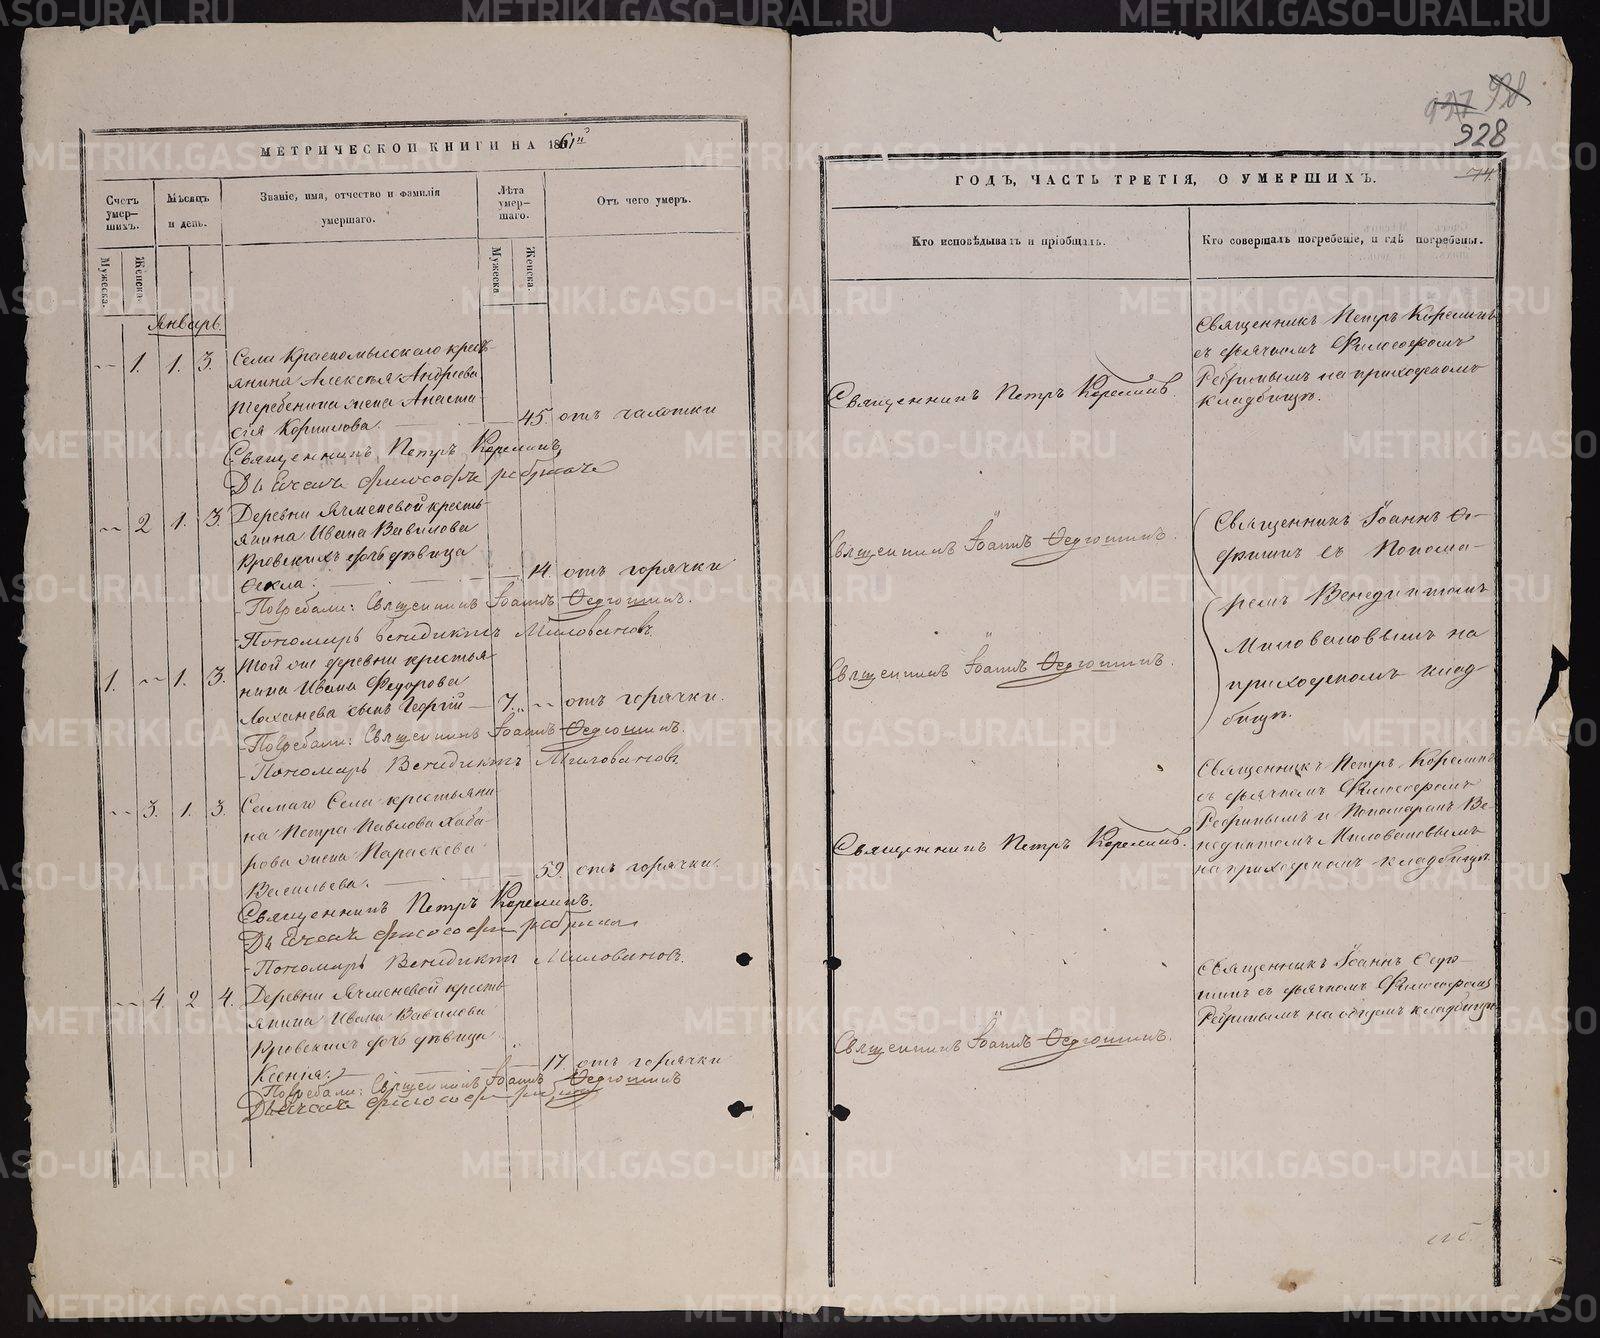 МЕТРИЧЕСКОЙ КНИГИ НА 1861й
Счетъ умер-шихъ.
Мѣсяцъ и день.
Званіе, имя, отчество и фамилія умершаго.
Лѣта умер-шаго.
Отъ чего умеръ.
Мужеска. Женска.
Мужеска Женска.
Январь.
1. 1. 3. Села Красномысскаго кресть-
янина Алексѣя Андреева
Теребенина жена Анаста-
сія Корнилова. 45. отъ чахотки
Священникъ Петръ Корелинъ
Дьячекъ Философъ
2 1. 3. Деревни Ячменевой кресть-
янина Ивана Вавилова
Кровскихъ дочь дѣвица
Ѳекла. 14. отъ горячки
Погребали: Священникъ Іоаннъ Ѳедюшинъ.
Пономарь Венидиктъ Миловановъ.
1. 1. 3. Той же деревни крестья
нина Ивана Федорова
Лоханева сынъ Георгій 7. отъ горячки.
Погребали: Священникъ Іоаннъ Ѳедюшинъ.
Пономарь Венидиктъ Миловановъ.
3. 1. 3. Самаго Села крестьяни
на Петра Павлова Хаба-
рова жена Параскева
Васильева. 59. отъ горячки.
Священникъ Петръ Корелинъ.
Дьячекъ Философъ
Пономарь Венидиктъ Миловановъ.
4. 2 4. Деревни Ячменевой кресть
янина Ивана Вавилова
Кровскихъ дочь дѣвица
Ксенія. 17. отъ горячки
Погребали: Священникъ Іоаннъ Ѳедюшинъ
Дьячекъ Философъ
928
74.
ГОДЪ, ЧАСТЬ ТРЕТІЯ, О УМЕРШИХЪ.
Кто исповѣдывалъ и пріобщалъ.
Кто совершалъ погребеніе, и гдѣ погребены.
Священникъ Петръ Корелинъ
Священникъ Петръ Корелинъ
съ дьячкомъ Философомъ
Ребринымъ на приходскомъ
кладбищѣ.
Священникъ Іоаннъ Ѳедюшинъ.
Священникъ Іоаннъ Ѳе-
дюшинъ съ Понома-
ремъ Венедиктомъ
Миловановымъ на
приходскомъ клад-
бищѣ.
Священникъ Іоаннъ Ѳедюшинъ.
Священникъ Петръ Корелинъ.
Священникъ Петръ Корелинъ
съ дьячкомъ Философомъ
Ребринымъ и Пономаремъ Ве-
недиктомъ Миловановымъ
на приходскомъ кладбищѣ.
Священникъ Іоаннъ Ѳедюшинъ.
Священникъ Іоаннъ Ѳедю-
шинъ съ дьячкомъ Философомъ
Ребринымъ на общемъ кладбищѣ
METRIKI.GASO-URAL.RU